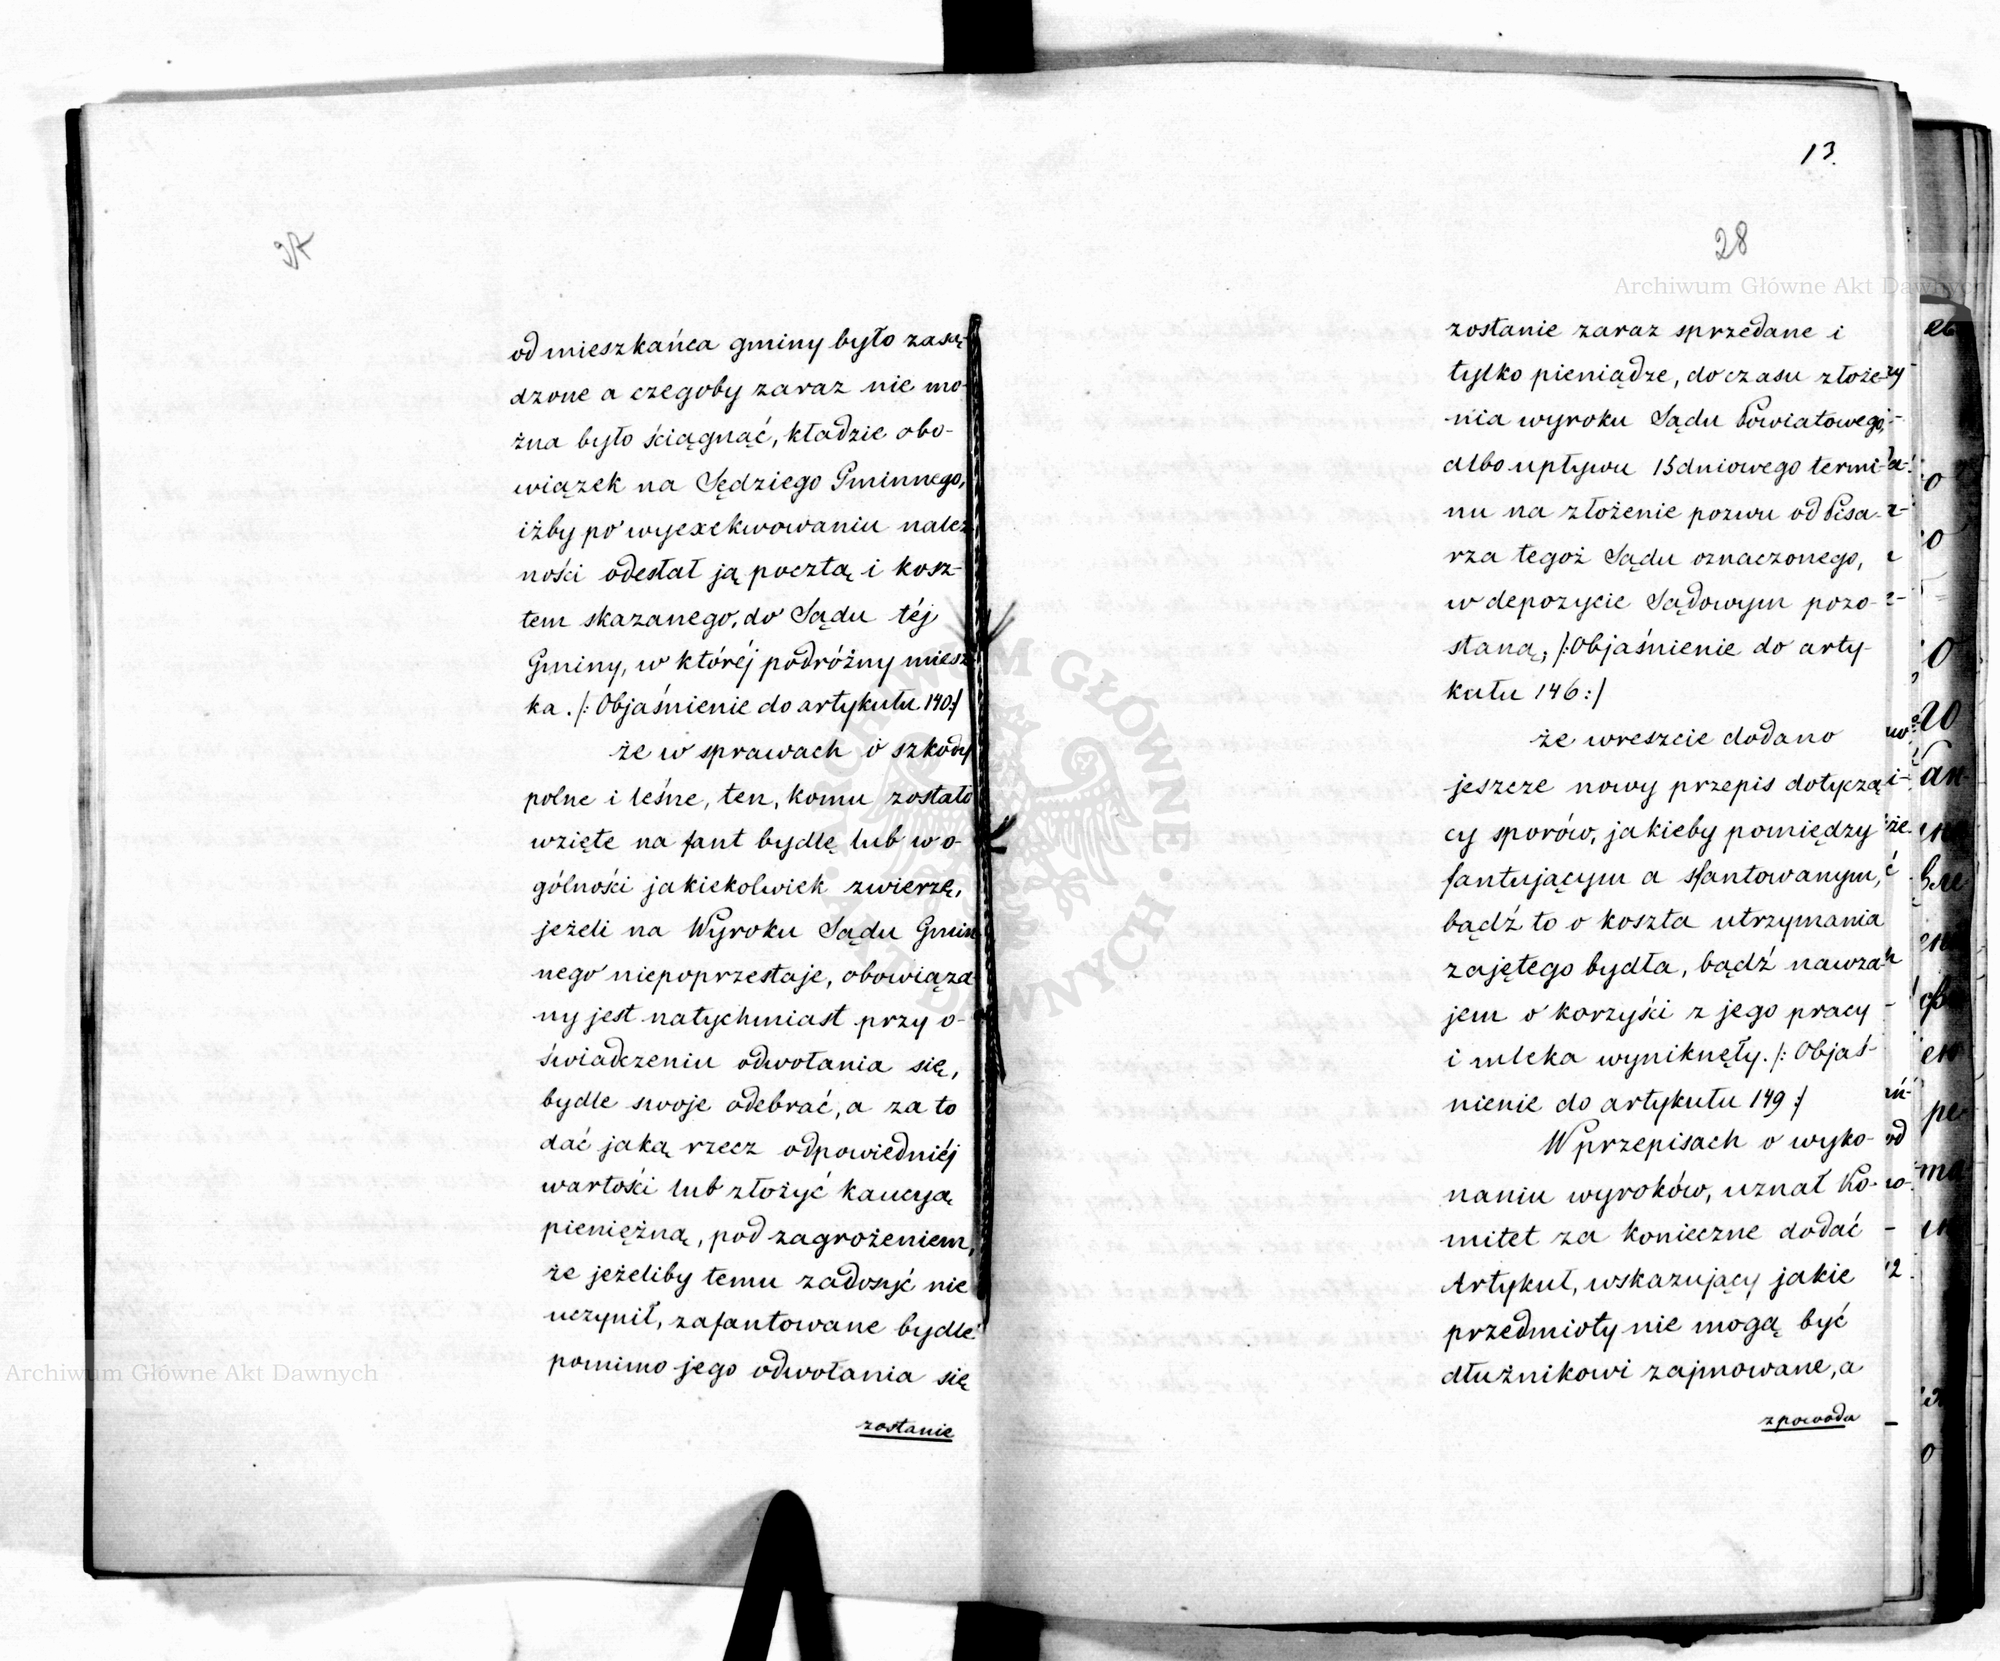 27
od mieszkańca gminy było zasą-
dzone a czegoby zaraz nie mo-
żna było ściągnąć, kładzie obo-
wiązek na Sędziego Gminnego,
iżby po wyexekwowaniu należ
ności odesłał ją pocztą i kosz-
tem skazanego, do Sądu téj
Gminy, w któréj podróżny miesz
ka. /: Objaśnienie do artykułu 140:/
że w sprawach o szkody
polne i leśne, ten, komu zostało
wzięte na fant bydlę lub w o-
gólności jakiekolwiek zwierzę,
jeżeli na Wyroku Sądu Gmin
nego niepoprzestaje, obowiąza
ny jest natychmiast przy o-
świadczeniu odwołania się,
bydle swoje odebrać, a za to
dać jaką rzecz odpowiedniéj
wartości lub złożyć kaucyą
pieniężną, pod zagrożeniem,
że jeżeliby temu zadosyć nie
uczynił, zafantowane bydle
pomimo jego odwołania się
zostanie
13.
28
zostanie zaraz sprzedane i
tylko pieniądze, do czasu złoże-
nia wyroku Sądu Powiatowego,
albo upływu 15 dniowego termi-
nu na złożenie pozwu od Pisa-
rza tegoż Sądu oznaczonego,
w depozycie Sądowym pozo-
staną; /: Objaśnienie do arty-
kułu 146:/
że wreszcie dodano
jeszcze nowy przepis dotyczą
cy sporów, jakieby pomiędzy
fantującym a sfantowanym,
bądź to o koszta utrzymania
zajętego bydła, bądź nawza-
jem o korzyści z jego pracy
i mleka wyniknęły. /: Objaś-
nienie do artykułu 149:/
W przepisach o wyko-
naniu wyroków, uznał Ko-
mitet za konieczne dodać
Artykuł, wskazujący jakie
przedmioty nie mogą być
dłużnikowi zajmowane, a
z powodu
Archiwum Główne Akt Dawnych
Archiwum Główne Akt Dawnych
ARCHIWUM GŁÓWNE AKT DAWNYCH